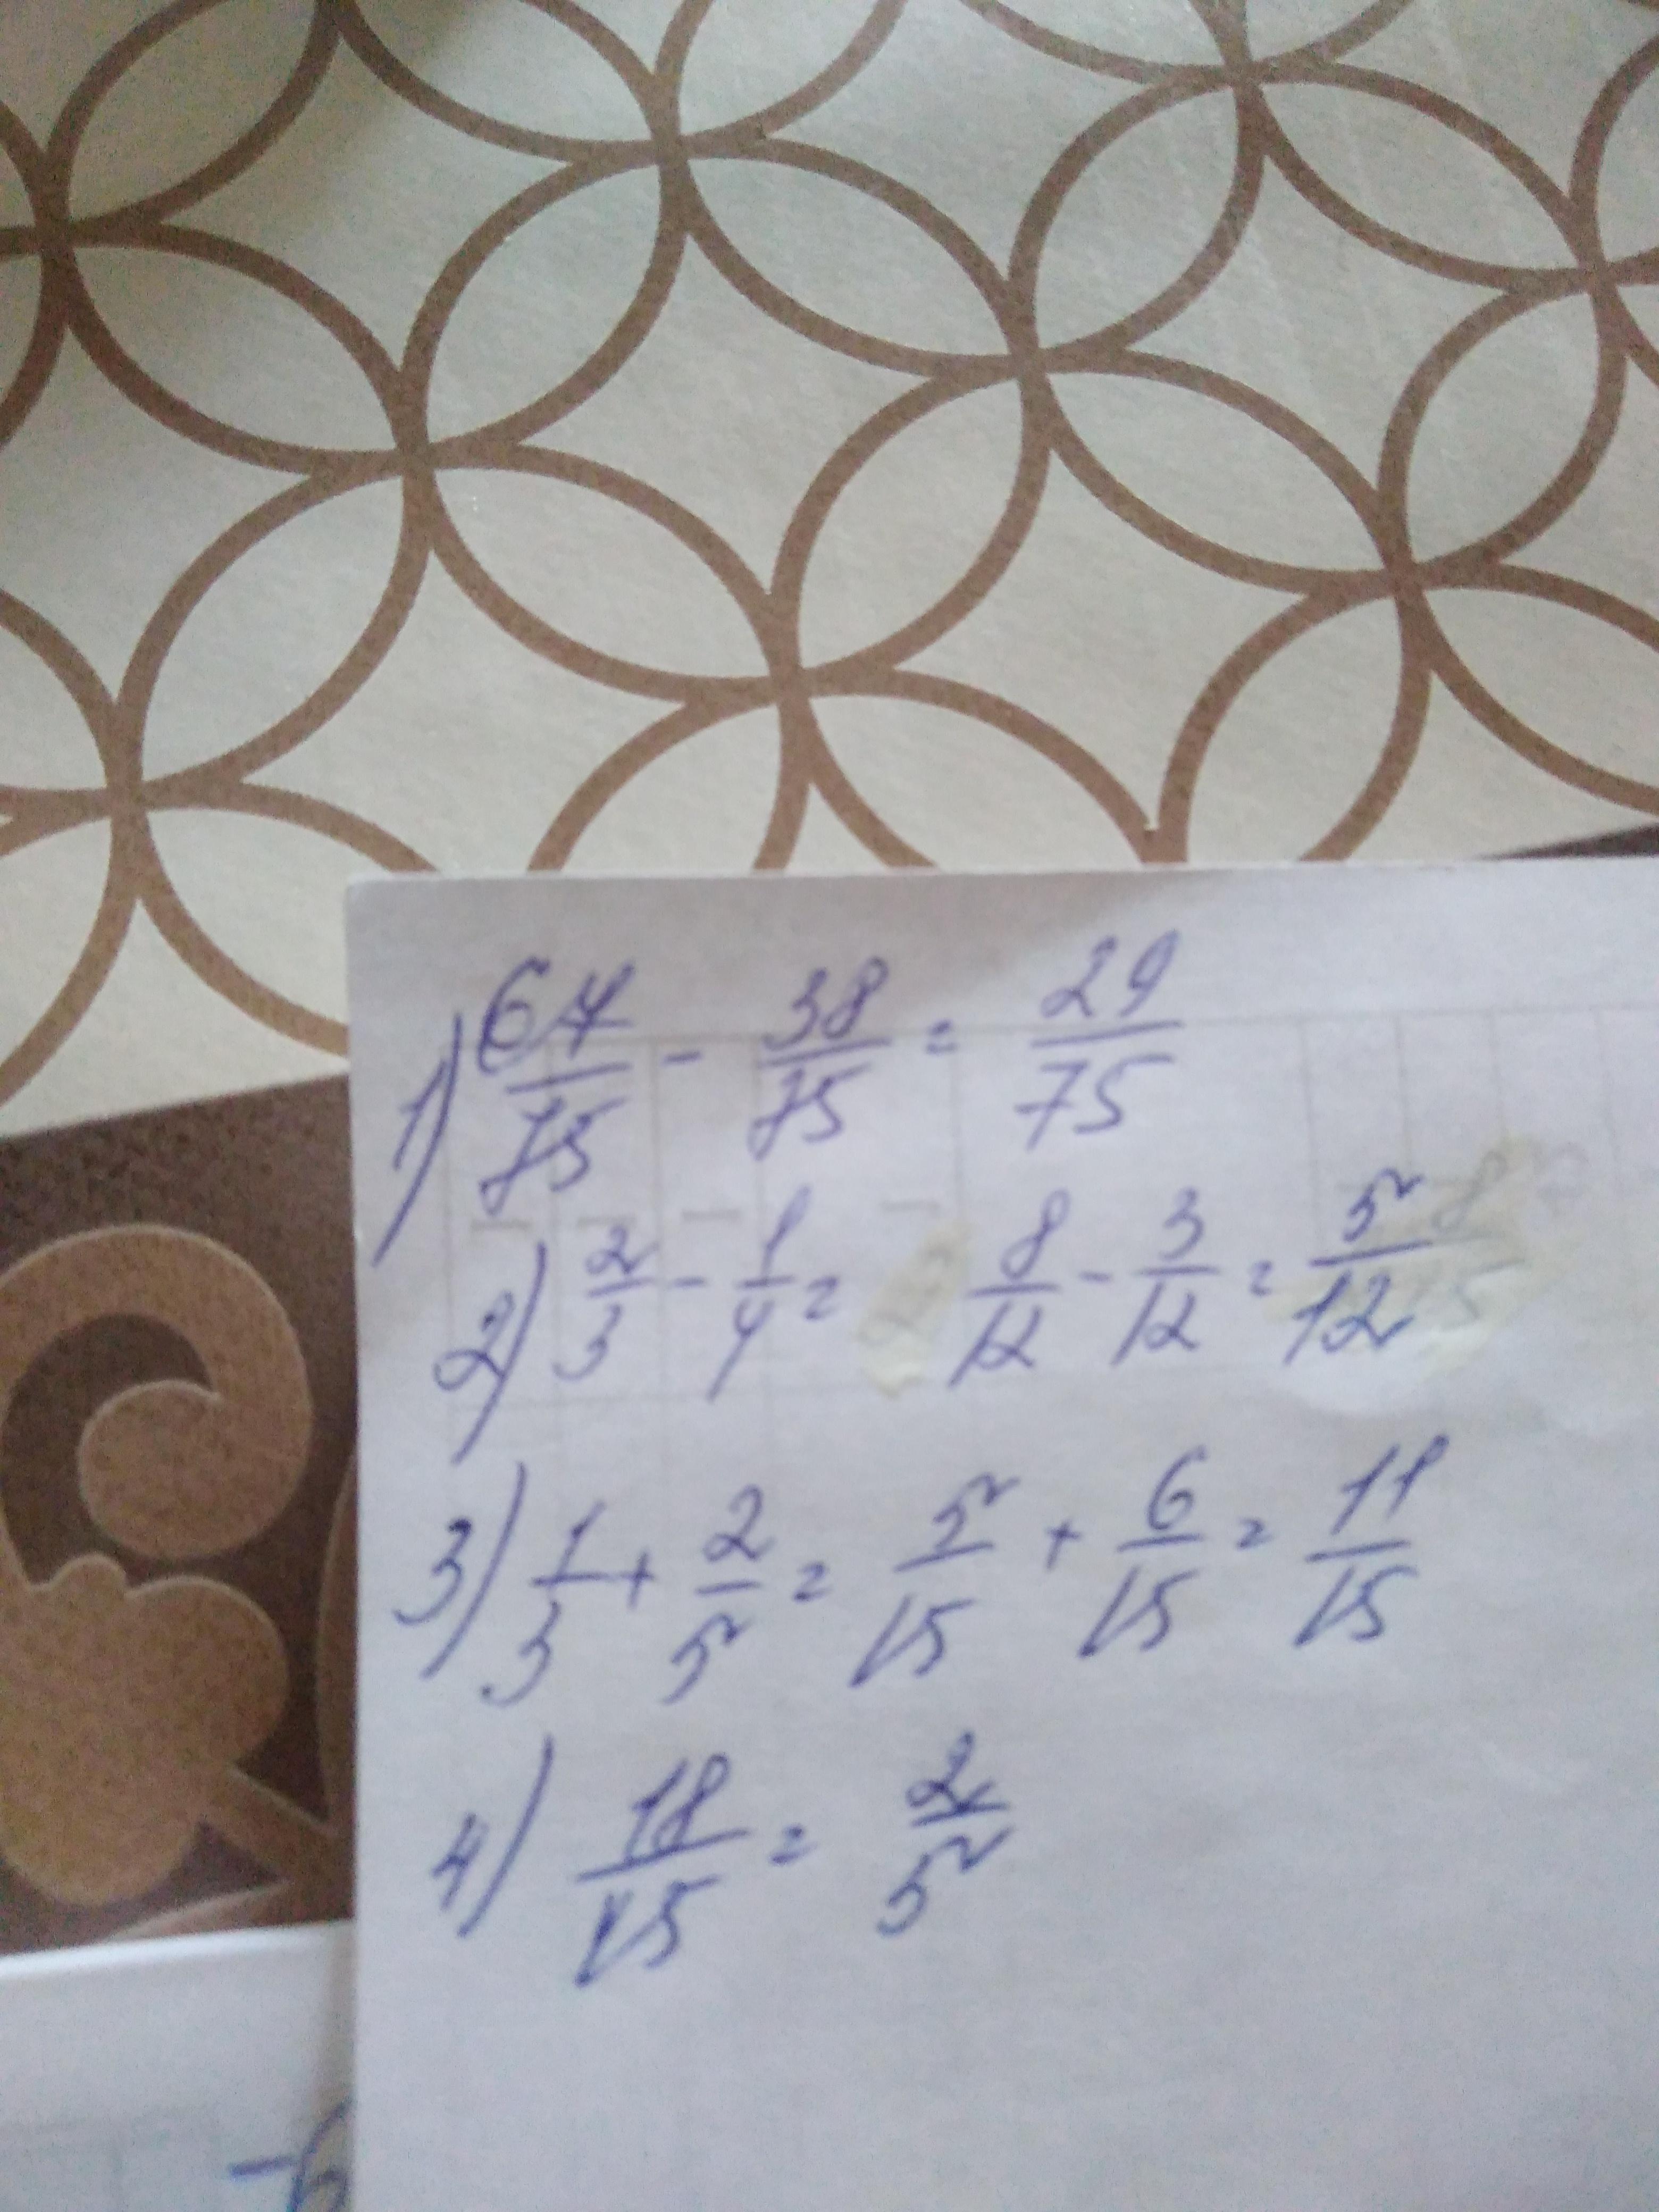 1) 67/75 - 38/75 = 29/75
2) 2/3 - 1/4 = 8/12 - 3/12 = 5/12
3) 1/3 + 2/5 = 5/15 + 6/15 = 11/15
4) 18/45 = 2/5
-6